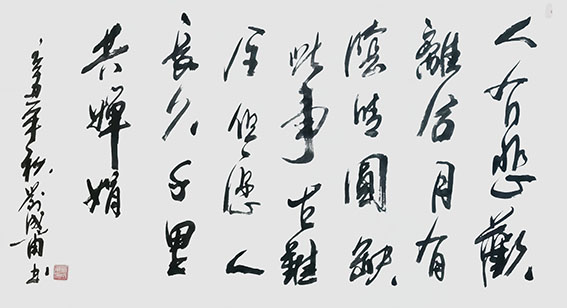 人有悲歡
離合月有
陰晴圓缺
此事古難
全但願人
長久千里
共嬋娟
年秋
書